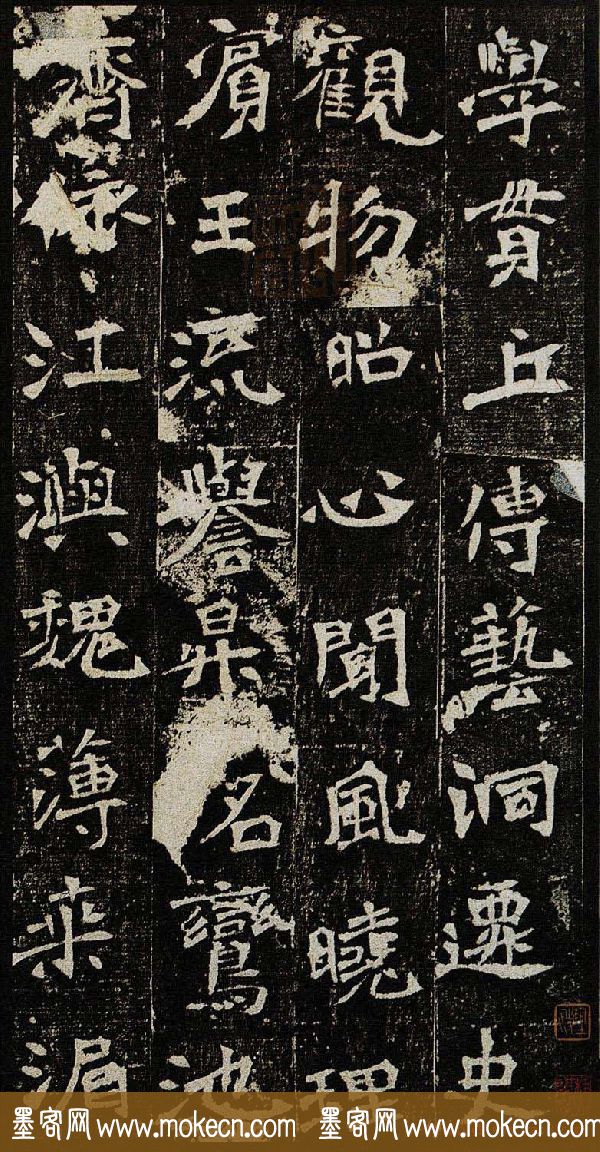 學貫丘傳藝洞遷史
觀物昭心聞風曉理
賓王流譽昇名鸞池
齊依江澳魏薄桒湄
墨客网 www.mokecn.com 墨客网 www.mokecn.com